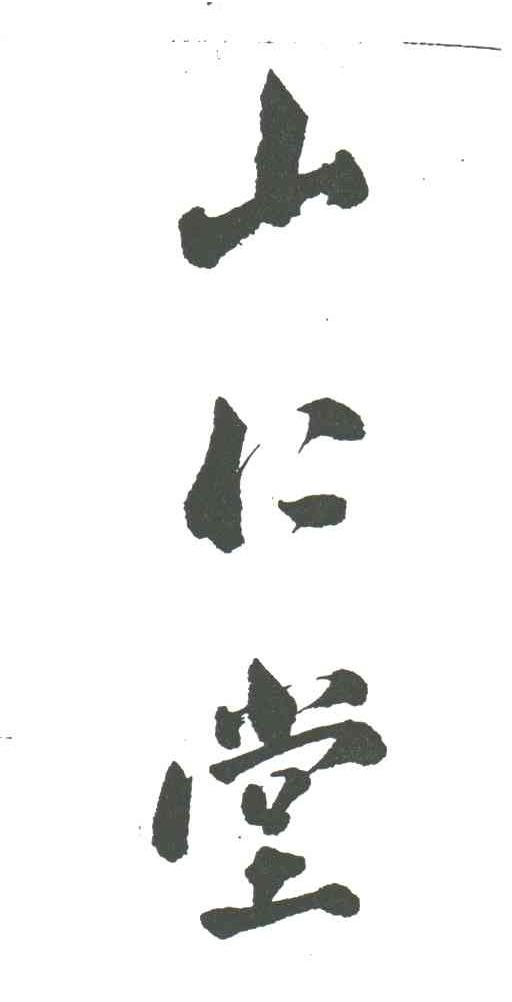 山仁堂